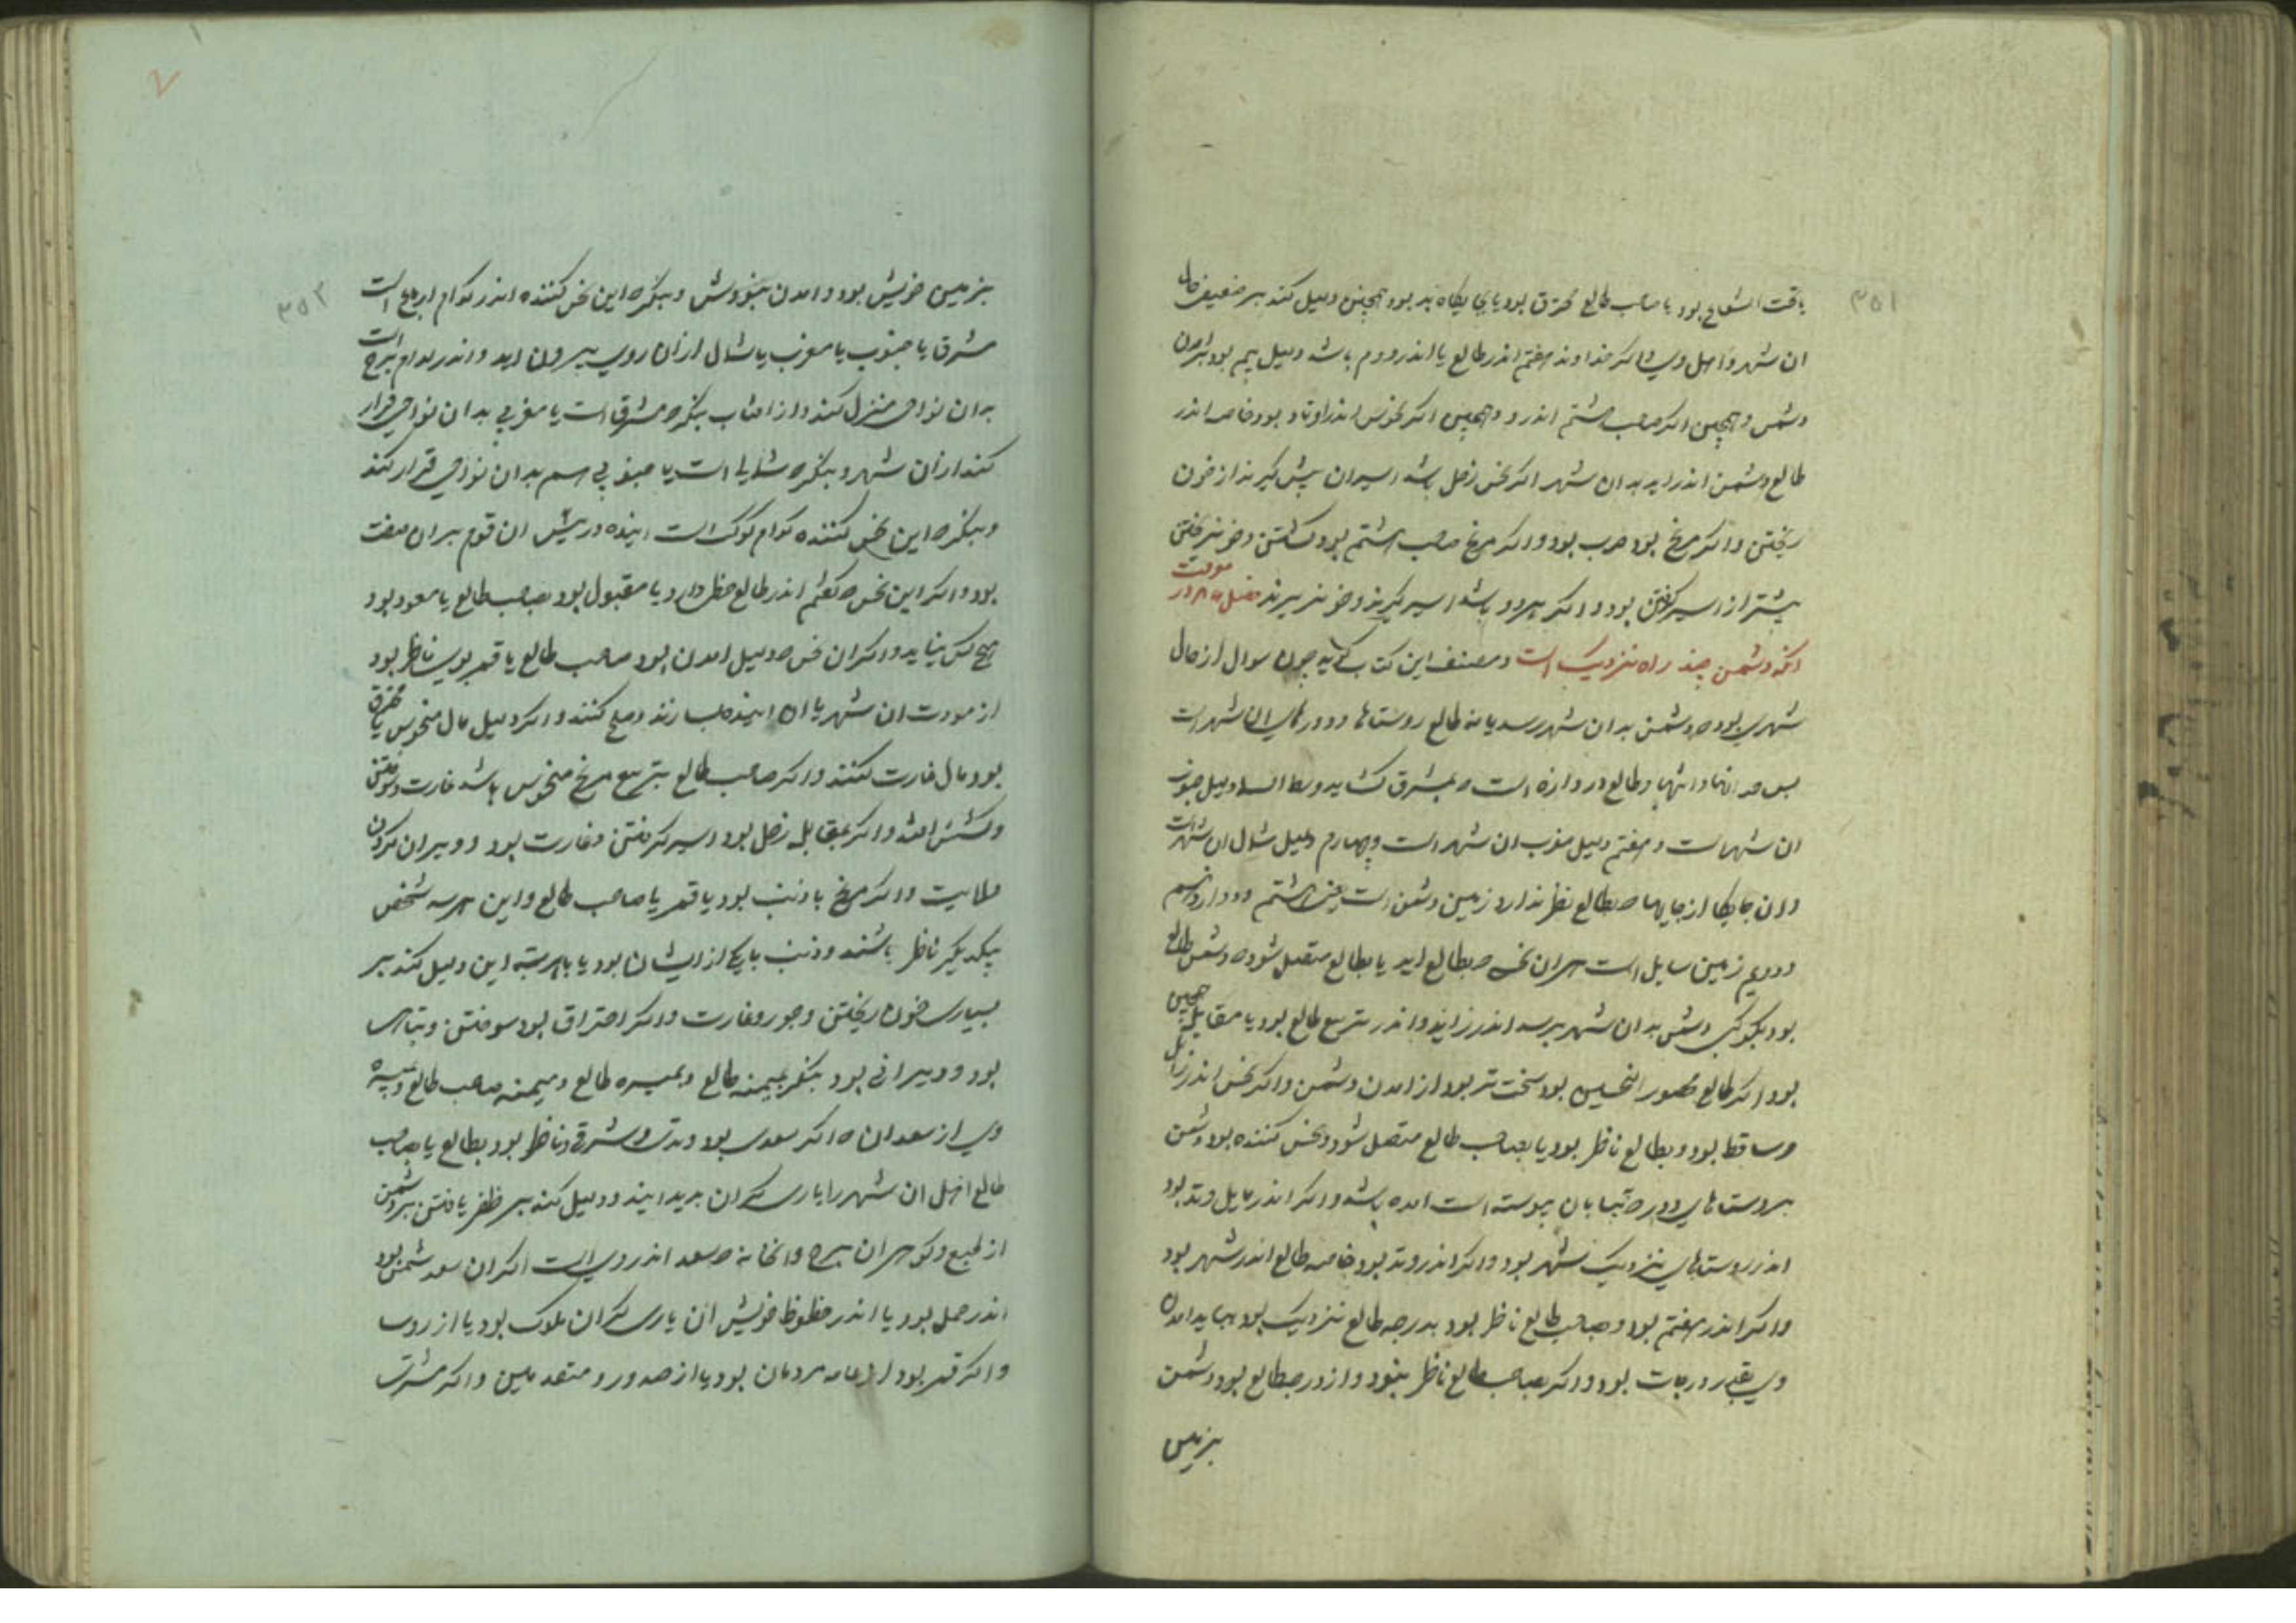 ۳۵۱
یا تحت الشعاع بود یا صاحب طالع محترق بود یا بجایکاه بد بود همچنین دلیل کند بر ضعیف حال
ان شهر و اهل وی و اکر خداوند هفتم اندر طالع یا اندر دوم باشد دلیل بیم بود بر امدن
دشمن و همچنین اکر صاحب هشتم اندرو و همچنین اکر نحوس اندر اوتاد بود خاصه اندر
طالع دشمن اندر اید بدان شهر اکر نحس زحل باشد اسیران بیش کیرند از خون
ریختن و اکر مریخ بود حرب بود و اکر مریخ صاحب هشتم بود کشتن و خون ریختن
بیشتر از اسیر کرفتن بود و اکر هر دو باشد اسیر کیرند و خون بریزند فصل در معرفت
انکه دشمن جند راه نزدیک است و مصنف این کتاب کوید جون سوال از حال
شهری بود که دشمن بدان شهر رسد یا نه طالع روستاها و دورهای ان شهر است
و طالع دروازه است که بمشرق کشاید و وسط السما دلیل جنوب
ان شهر است و هفتم دلیل مغرب ان شهر است و چهارم دلیل شمال ان شهر است
و ان جایکاه از جایها که بطالع نظر ندارد زمین دشمن است یعنی هشتم و دوازدهم
و دویم زمین سایل است هر ان نحس که بطالع اید یا بطالع متصل شود که دشمن طالع
بود بکوکبی دشمن بدان شهر برسد اندر زاید و اندر تربیع طالع بود یا مقابله همچنین
بود اکر طالع محصور النحسین بود سخت تر بود از امدن دشمن و اکر نحس اندر زایل
و ساقط بود و بطالع ناظر بود یا بصاحب طالع متصل شود و نحس کننده بود دشمن
بروستاهای دور که بیابان پیوسته است امده باشد و اکر اندر مایل وتد بود
اندر روستاهای نزدیک شهر بود و اکر اندر وتد بود خاصه طالع اندر شهر بود
و اکر اندر هفتم بود و بصاحب طالع ناظر بود بدرجه طالع نزدیک بود بیاید امدن
وی بقدر درجات بود و اکر بصاحب طالع ناظر نبود و از درجه طالع بود دشمن
بزمین
۳۵۲
بزمین خویش بود و امدن نبودش و بنکر که این نحس کننده اندر کدام ارباع است
مشرق یا جنوب یا مغرب یا شمال از ان روی بیرون اید و اندر کدام برج است
بدان نواحی منزل کند و از افتاب بنکر که مشرقی است یا مغربی بدان نواحی قرار
کند از ان شهر و بنکر که شمالی است یا جنوبی هم بدان نواحی قرار کند
و بنکر که این نحس کننده کدام کوکب است اینده در پیش ان قوم بران صفت
بود و اکر این نحس که کفتم اندر طالع حظ دارد یا مقبول بود بصاحب طالع یا مسعود بود
هیچ کس نیاید و اکر ان نحس که دلیل امدن بود صاحب طالع یا قمر بوی ناظر بود
از مودت ان شهر با ان اینده بسازند و صلح کنند و اکر دلیل مال منحوس یا محترق
بود مال غارت کنند و اکر صاحب طالع بتربیع مریخ منحوس باشد غارت و سوختن
و کشتن افتد و اکر بمقابله زحل بود اسیر کرفتن و غارت بود و ویران کردن
ولایت و اکر مریخ با ذنب بود یا قمر یا صاحب طالع و این هر سه شخص
بیکدیکر ناظر باشند و ذنب با یکی از ایشان بود یا با هر سه این دلیل کند بر
بسیاری خون ریختن و جور و غارت و اکر احتراق بود سوختن و تباهی
بود و ویرانی بود بنکر بمیمنه طالع و بمیسره طالع و میمنه صاحب طالع و میسره
وی از سعدان که اکر سعدی بود وتدی و مشرقی و ناظر بود بطالع یا بصاحب
طالع اهل ان شهر را یاری کران بدید ایند و دلیل کند بر ظفر یافتن بر دشمن
از طبع و کوهر ان برج و ان خانه که سعد اندر وی است اکر ان سعد شمس بود
اندر حمل بود یا اندر حظوظ خویش ان یاری کران ملوک بود یا از روسا
و اکر قمر بود از عامه مردمان بود یا از صدور و متقدمین و اکر مشتری